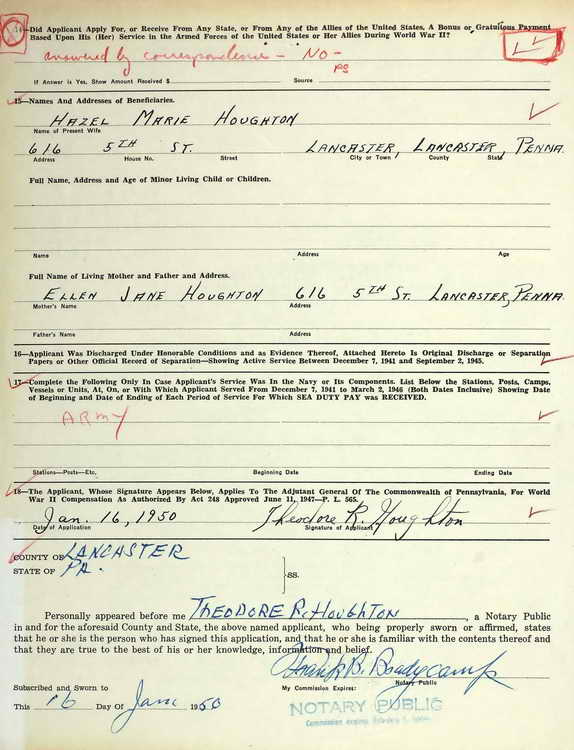 14—Did Applicant Apply For, or Receive From Any State, or From Any of the Allies of the United States, A Bonus or Gratuitous Payment
Based Upon His (Her) Service in the Armed Forces of the United States or Her Allies During World War II?
answered by correspondence – NO –
PS
If Answer is Yes, Show Amount Received $ Source
15—Names And Addresses of Beneficiaries.
HAZEL MARIE HOUGHTON
Name of Present Wife
616 5TH ST. LANCASTER, LANCASTER, PENNA.
Address House No. Street City or Town County State
Full Name, Address and Age of Minor Living Child or Children.
Name Address Age
Full Name of Living Mother and Father and Address.
ELLEN JANE HOUGHTON 616 5TH ST. LANCASTER, PENNA.
Mother's Name Address
Father's Name Address
16—Applicant Was Discharged Under Honorable Conditions and as Evidence Thereof, Attached Hereto Is Original Discharge or Separation
Papers or Other Official Record of Separation—Showing Active Service Between December 7, 1941 and September 2, 1945.
17—Complete the Following Only In Case Applicant's Service Was In the Navy or Its Components. List Below the Stations, Posts, Camps,
Vessels or Units, At, On, or With Which Applicant Served From December 7, 1941 to March 2, 1946 (Both Dates Inclusive) Showing Date
of Beginning and Date of Ending of Each Period of Service For Which SEA DUTY PAY was RECEIVED.
ARMY
Stations—Posts—Etc. Beginning Date Ending Date
18—The Applicant, Whose Signature Appears Below, Applies To The Adjutant General Of The Commonwealth of Pennsylvania, For World
War II Compensation As Authorized By Act 248 Approved June 11, 1947—P. L. 565.
Jan. 16, 1950 Theodore R. Houghton
Date of Application Signature of Applicant
COUNTY OF LANCASTER
STATE OF PA. SS.
Personally appeared before me THEODORE R. HOUGHTON, a Notary Public
in and for the aforesaid County and State, the above named applicant, who being properly sworn or affirmed, states
that he or she is the person who has signed this application, and that he or she is familiar with the contents thereof and
that they are true to the best of his or her knowledge, information and belief.
Frank B. Boadycamp
Subscribed and Sworn to My Commission Expires: Notary Public
This 16 Day Of Jan 1950
NOTARY PUBLIC
Commission expires